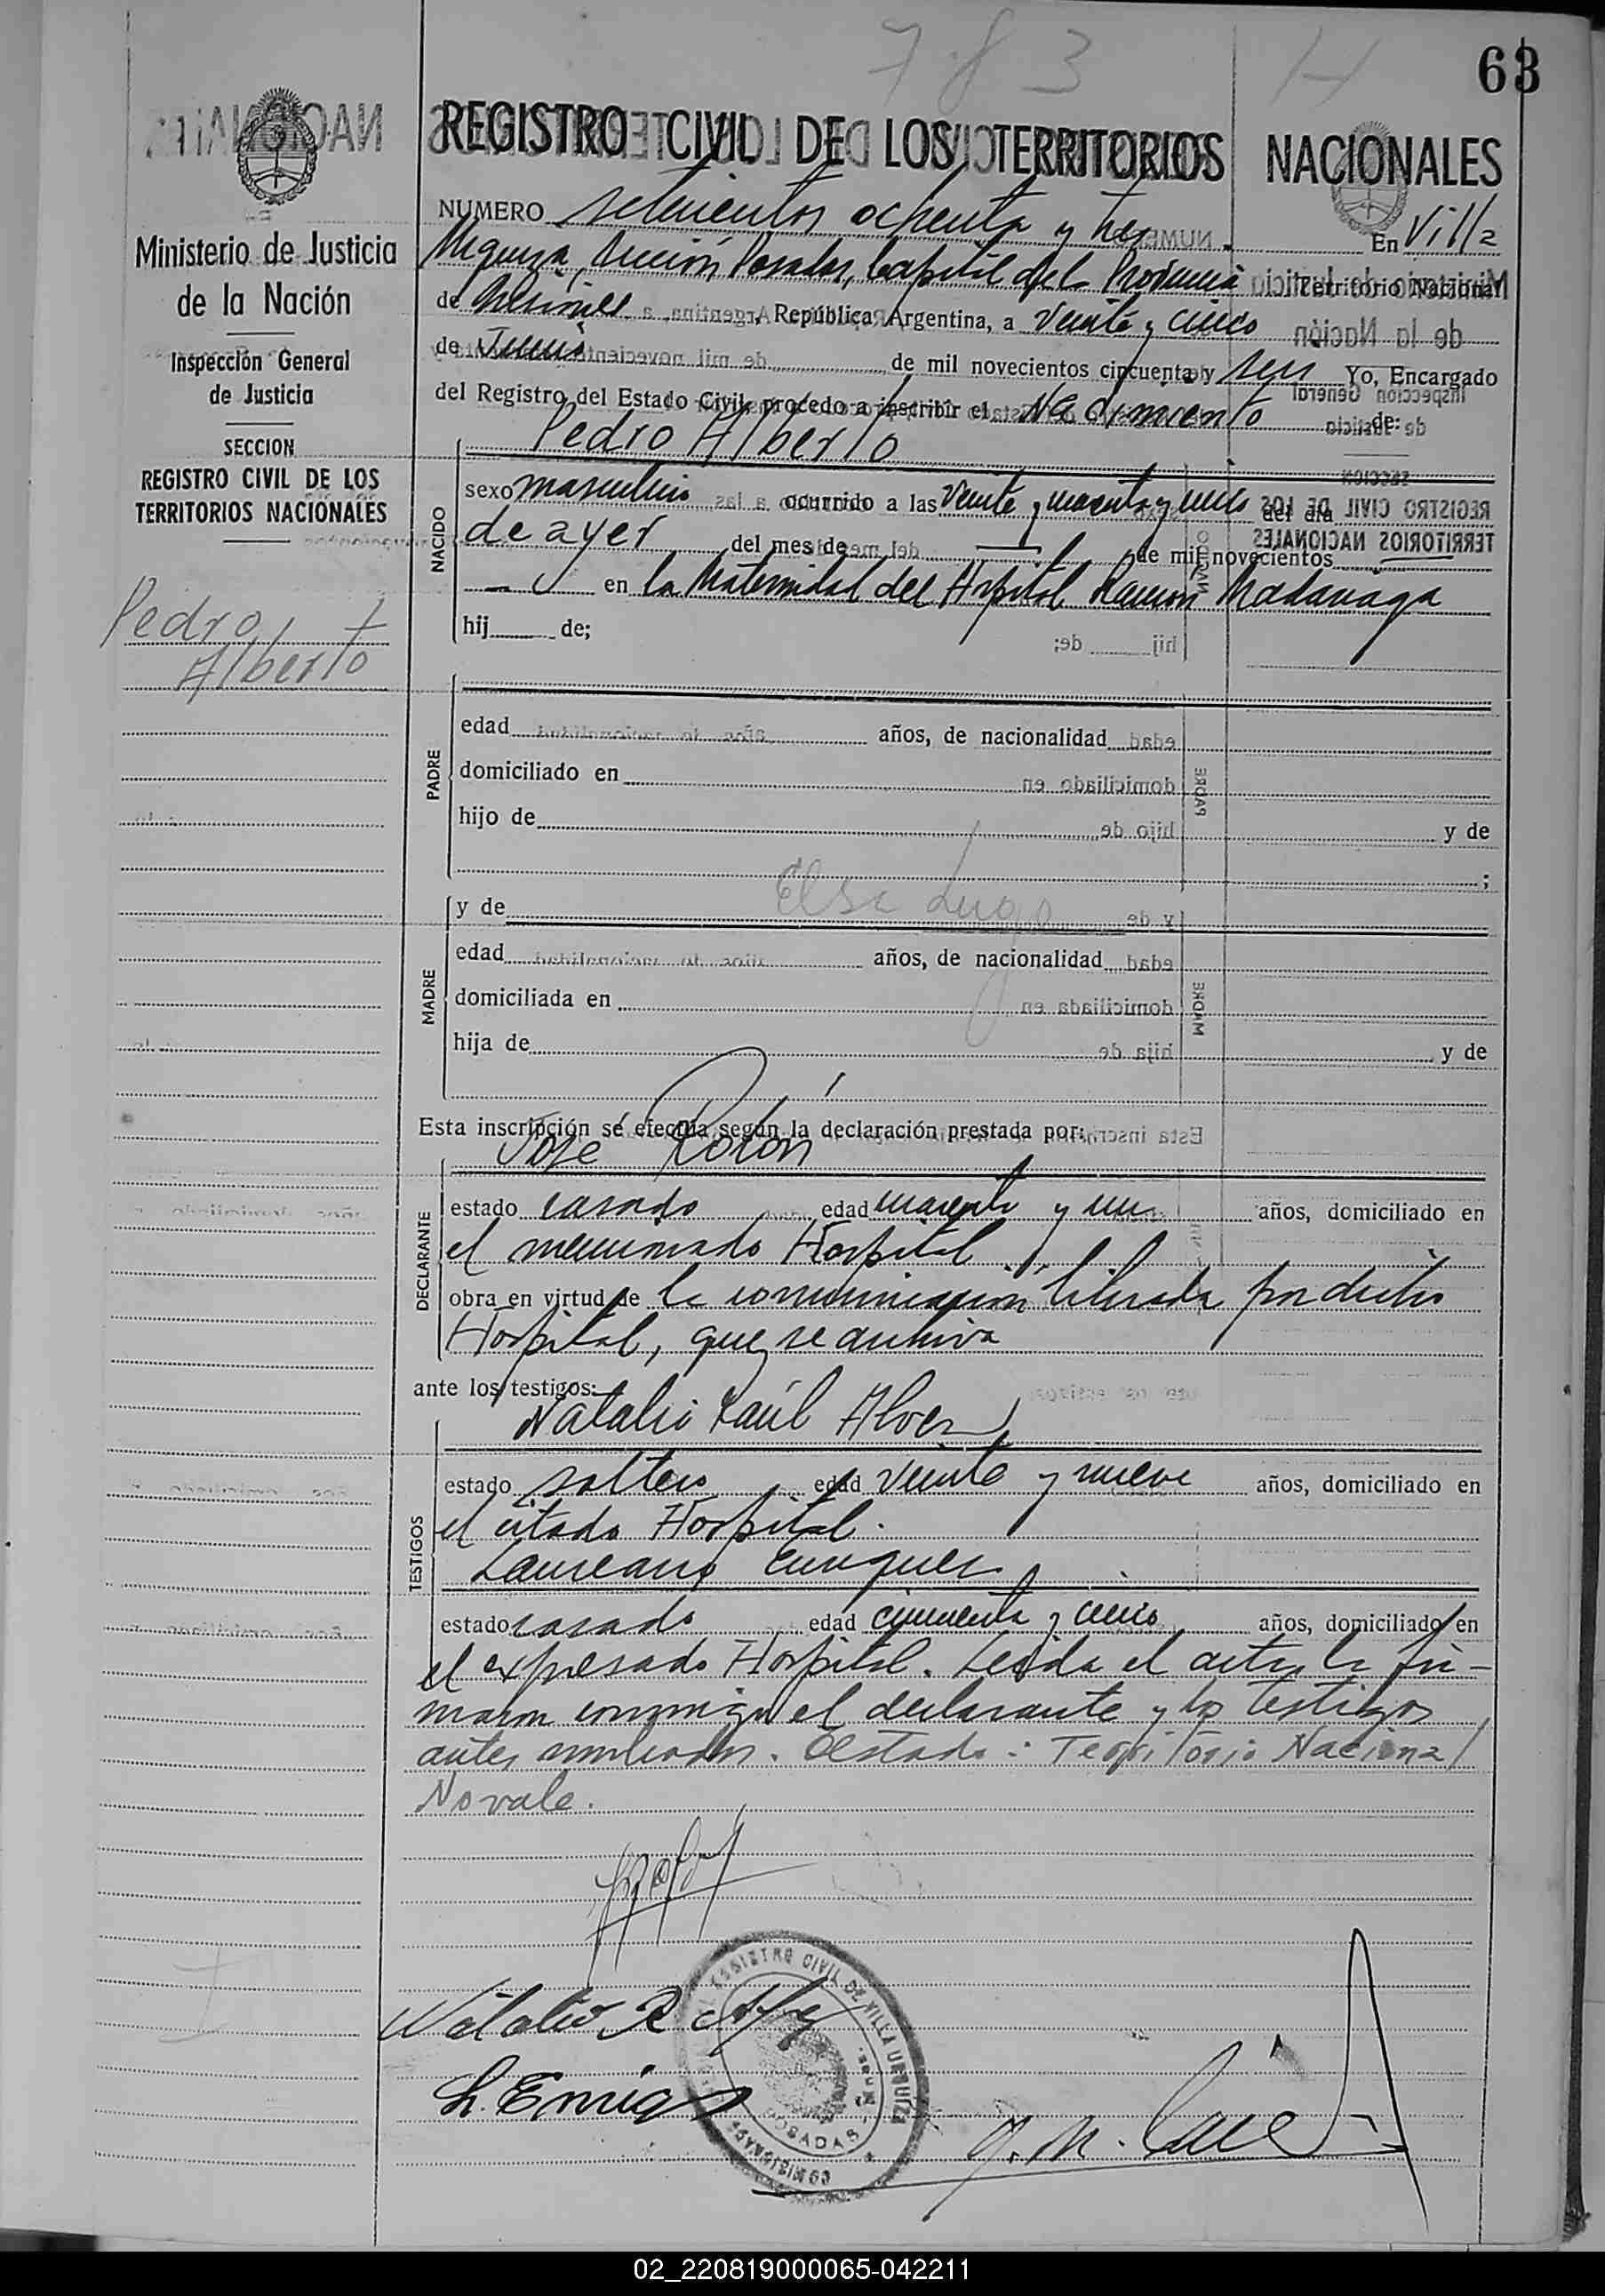 783 H
63
REGISTRO CIVIL DE LOS TERRITORIOS NACIONALES
Ministerio de Justicia
de la Nación
Inspección General
de Justicia
SECCION
REGISTRO CIVIL DE LOS
TERRITORIOS NACIONALES
Pedro
Alberto
NUMERO setecientos ochenta y tres. En Villa
Urquiza, Sección Posadas, Capital de la Provincia Territorio Nacional
de Misiones, República Argentina, a veinte y cinco
de Junio de mil novecientos cincuenta y seis Yo, Encargado
del Registro del Estado Civil, procedo a inscribir el Nacimiento de:
NACIDO
Pedro Alberto
sexo masculino ocurrido a las veinte y cuarenta y cinco del día
de ayer del mes de — de mil novecientos —
— en la Maternidad del Hospital Ramón Madariaga
hij de;
PADRE
edad años, de nacionalidad
domiciliado en
hijo de y de
;
MADRE
y de Elsa Lugo
edad años, de nacionalidad
domiciliada en
hija de y de
Esta inscripción se efectúa según la declaración prestada por:
DECLARANTE
José Rolón
estado casado edad cuarenta y un años, domiciliado en
el mencionado Hospital
obra en virtud de la comunicación librada por dicho
Hospital, que se archiva
ante los testigos:
TESTIGOS
Natalio Raúl Alvez
estado soltero edad veinte y nueve años, domiciliado en
el citado Hospital.
Laureano Enriquez
estado casado edad cincuenta y cinco años, domiciliado en
el expresado Hospital. Leída el acta, la fir-
maron conmigo el declarante y los testigos
antes nombrados. Testado: Territorio Nacional
No vale.
Natalio R. Alvez
L. Enriquez
REGISTRO CIVIL DE VILLA URQUIZA
POSADAS
02_220819000065-042211